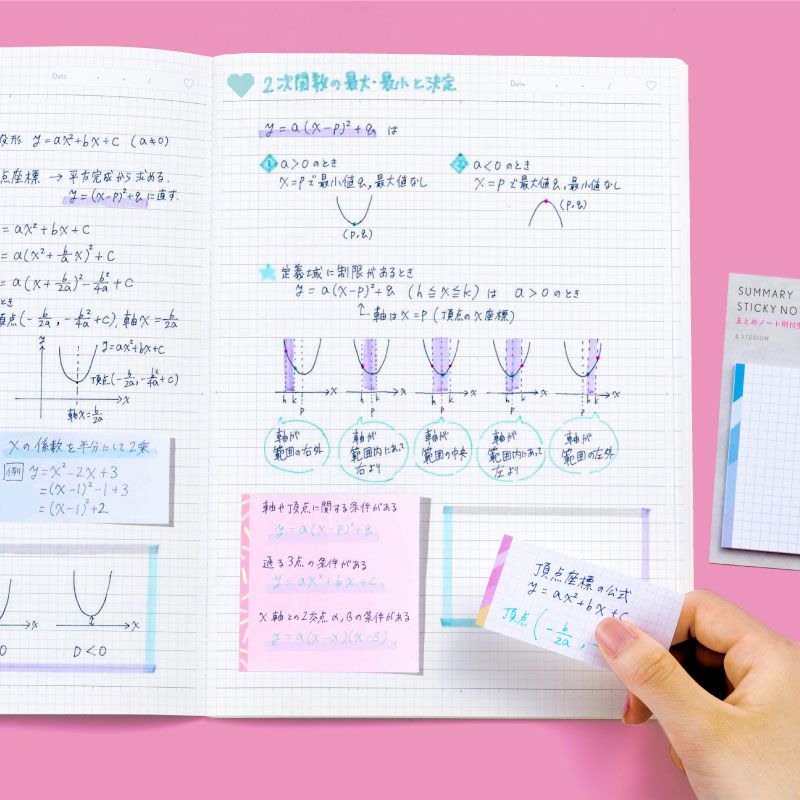 Date
般形 y=ax²+bx+c (a≠0)
点座標 → 平方完成から求める.
y=(x-p)²+q に直す.
=ax²+bx+c
=a(x²+b/a x)²+c
=a(x+b/2a)²-b²/4a+c
とき
頂点(-b/2a, -b²/4a+c), 軸x=b/2a
y
y=ax²+bx+c
頂点(-b/2a, -b²/4a+c)
x
軸x=b/2a
xの係数を半分にして2乗
例 y=x²-2x+3
=(x-1)²-1+3
=(x-1)²+2
x
x
0
D<0
2次関数の最大・最小と決定
Date
y=a(x-p)²+q は
1 a>0のとき
x=pで最小値q, 最大値なし
(p,q)
2 a<0のとき
x=pで最大値q, 最小値なし
(p,q)
定義域に制限があるとき
y=a(x-p)²+q (h≦x≦k) は a>0のとき
↑軸はx=p (頂点のx座標)
h k p x
h k p x
h k p x
h k p x
p h k x
軸が範囲の右外
軸が範囲内にあって右より
軸が範囲の中央
軸が範囲内にあって左より
軸が範囲の左外
軸や頂点に関する条件がある
y=a(x-p)²+q
通る3点の条件がある
y=ax²+bx+c
x軸との2交点α,βの条件がある
y=a(x-α)(x-β)
頂点座標の公式
y=ax²+bx+c
頂点(-b/2a, -
SUMMARY
STICKY NO
まとめノート用付
& STUDIUM